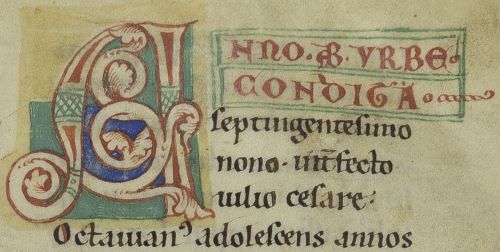 ANNO·AB·VRBE·
CONDITA·
septingentesimo
nono·int̄fecto
iulio cesare·
Octauianꝰ adolescens annos